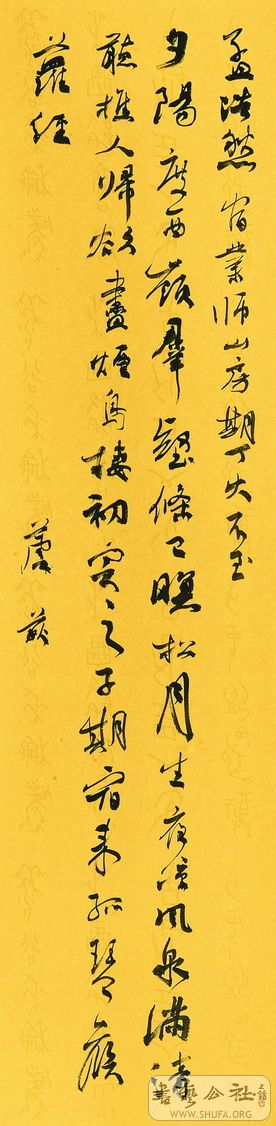 孟浩然宿業師山房期丁大不至
夕陽度西嶺羣壑倏已暝松月生夜涼風泉滿清
聽樵人歸欲盡煙鳥棲初定之子期宿來孤琴候
蘿徑
書藝公社
WWW.SHUFA.ORG